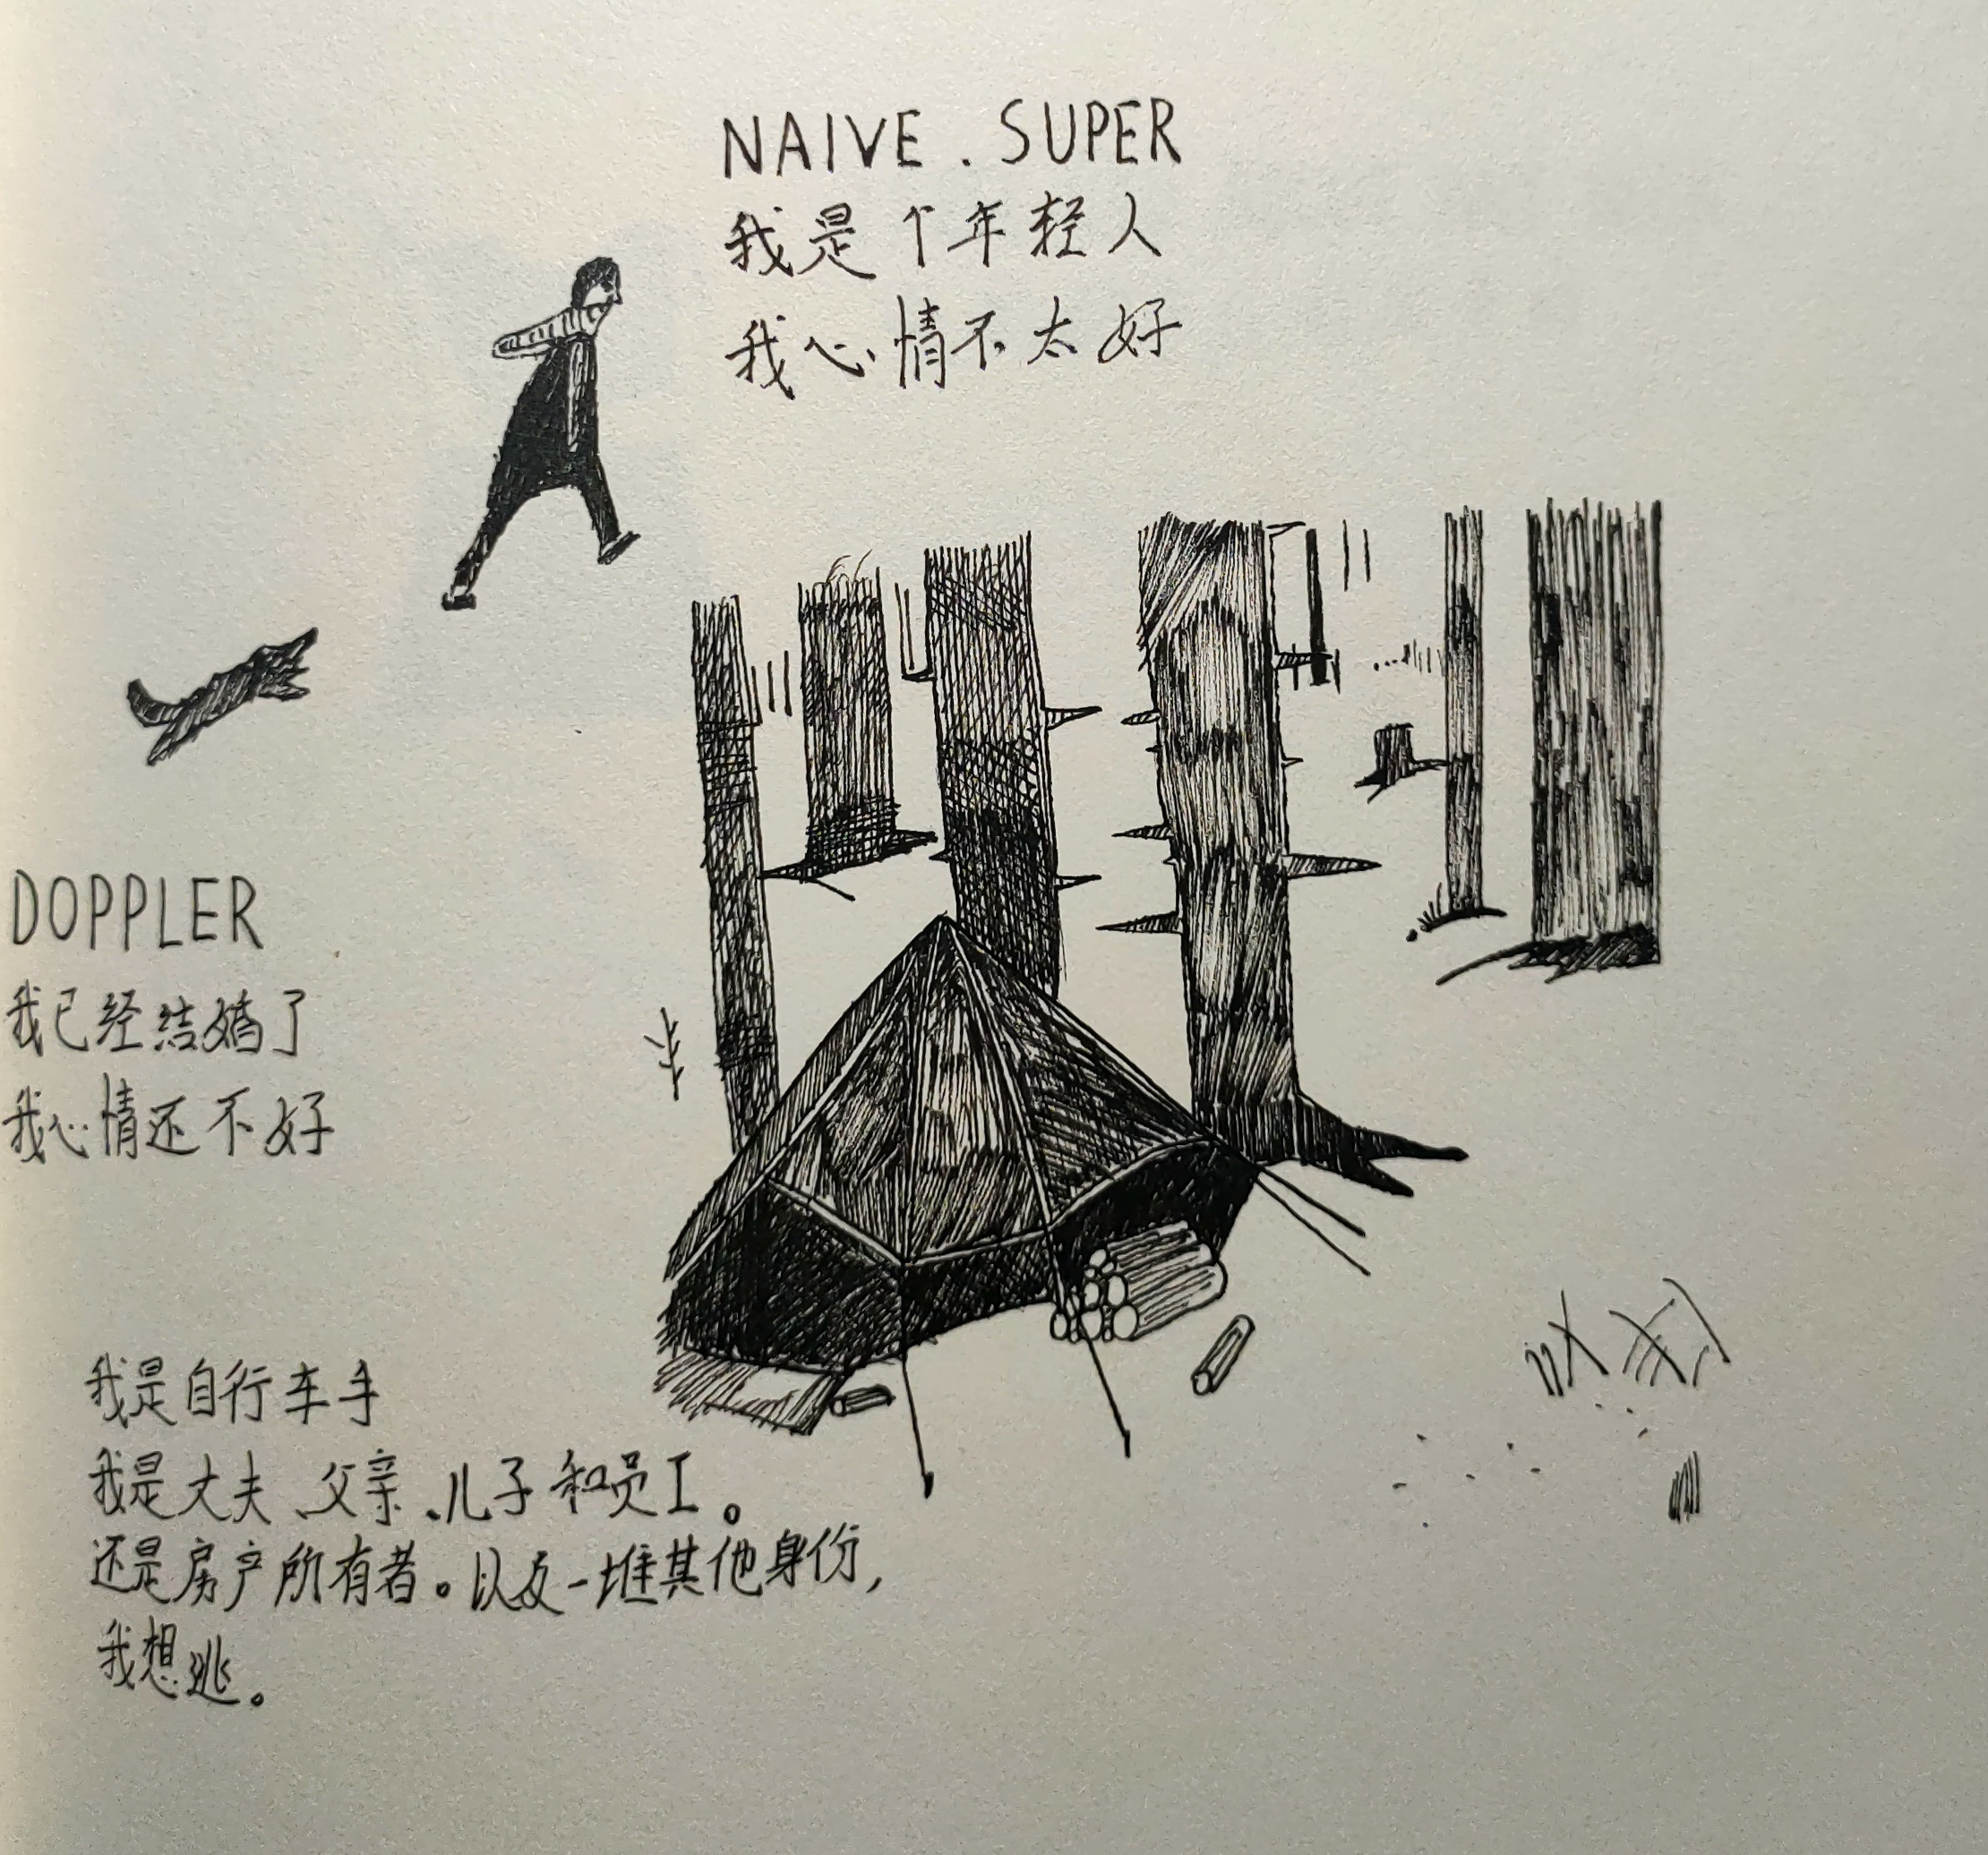 NAIVE . SUPER
我是个年轻人
我心情不太好
DOPPLER
我已经结婚了
我心情还不好
我是自行车手
我是丈夫、父亲、儿子和员工。
还是房产所有者。以及一堆其他身份,
我想逃。